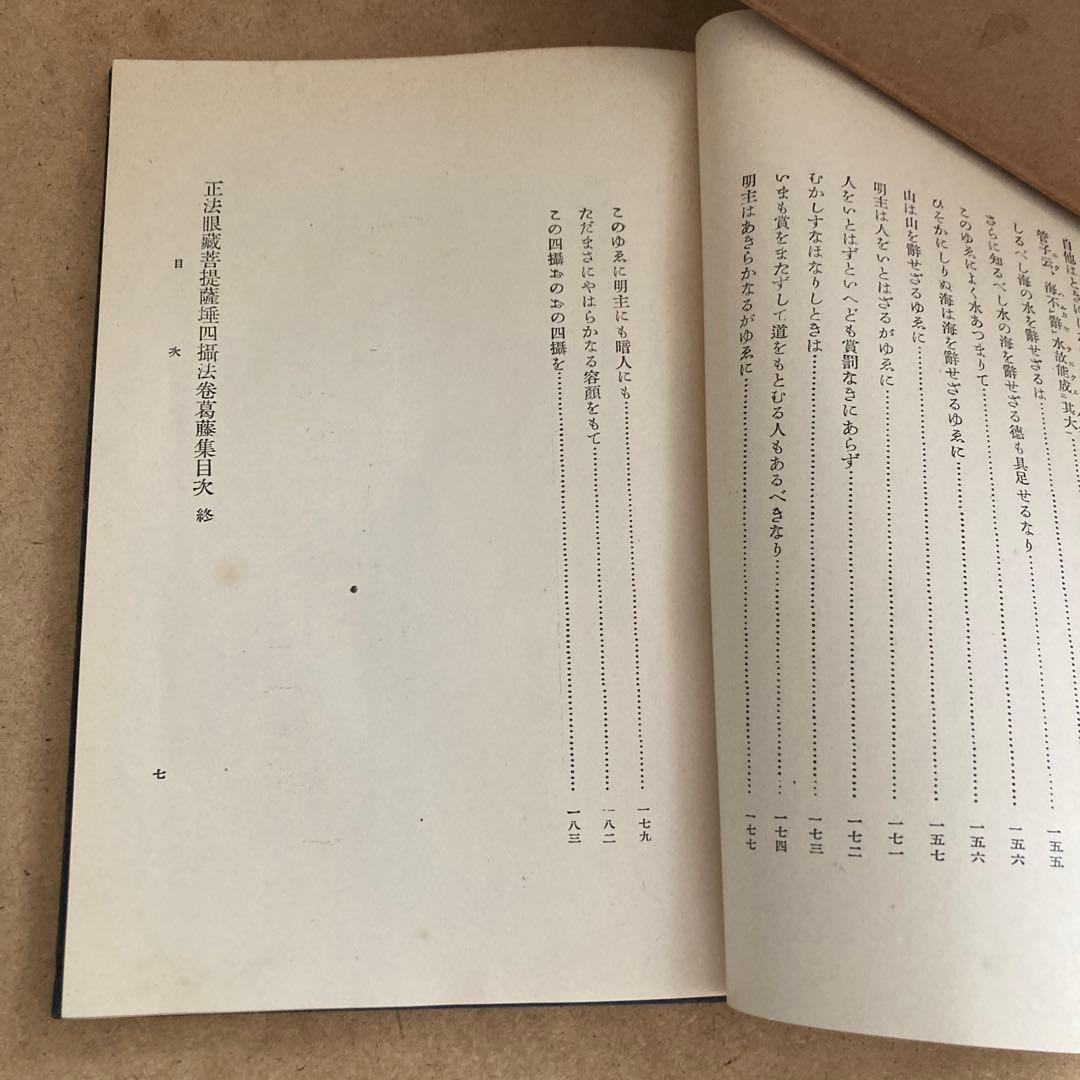 自他は
管子云、海不辭水故能成其大……一五五
しるべし海の水を辭せざるは……一五六
さらに知るべし水の海を辭せざる德も具足せるなり
このゆゑによく水あつまりて……一五六
ひそかにしりぬ海は海を辭せざるゆゑに……一五七
山は山を辭せざるゆゑに
明主は人をいとはざるがゆゑに……一七一
人をいとはずといへども賞罰なきにあらず……一七二
むかしすなほなりしときは……一七三
いまも賞をまたずして道をもとむる人もあるべきなり……一七四
明主はあきらかなるがゆゑに……一七七
このゆゑに明主にも暗人にも……一七九
ただまさにやはらかなる容顔をもて……一八二
この四攝おのおの四攝を……一八三
正法眼藏菩提薩埵四攝法卷葛藤集目次 終
目次
七